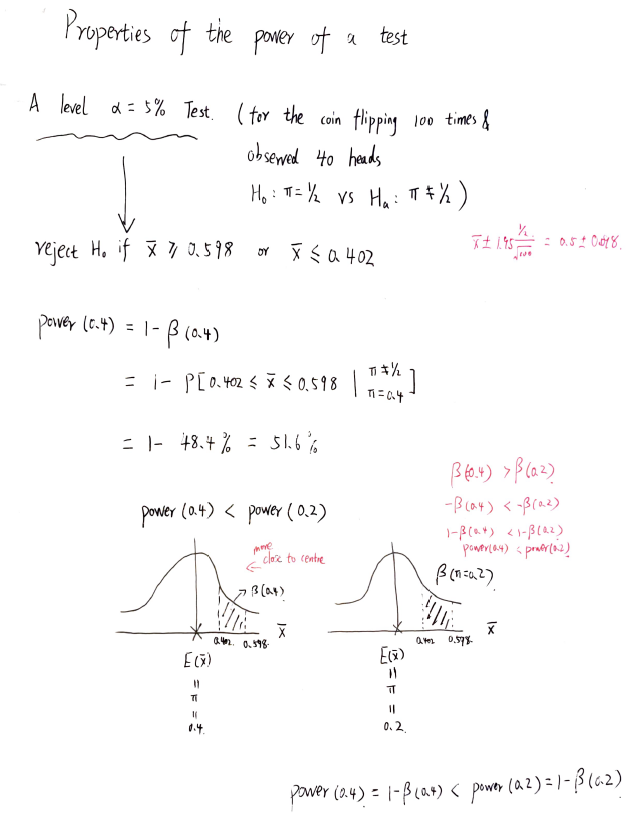 Properties of the power of a test
A level α = 5% Test. (for the coin flipping 100 times &
observed 40 heads
H₀ : π = ½ vs Hₐ : π ≠ ½)
reject H₀ if x̄ ⩾ 0.598 or x̄ ≤ 0.402
x̄ ± 1.95 ½/√100 = 0.5 ± 0.098
power (0.4) = 1 - β(0.4)
= 1 - P[0.402 ≤ x̄ ≤ 0.598 | π ≠ ½ π = 0.4]
= 1 - 48.4% = 51.6%
β(0.4) > β(0.2)
-β(0.4) < -β(0.2)
1-β(0.4) < 1-β(0.2)
power(0.4) < power(0.2)
power (0.4) < power (0.2)
more
close to centre
←
β(0.4)
β(π=0.2)
0.402 0.598 x̄
0.402 0.598 x̄
E(x̄)
=
π
=
0.4
E(x̄)
=
π
=
0.2
power (0.4) = 1-β(0.4) < power (0.2) = 1-β(0.2)